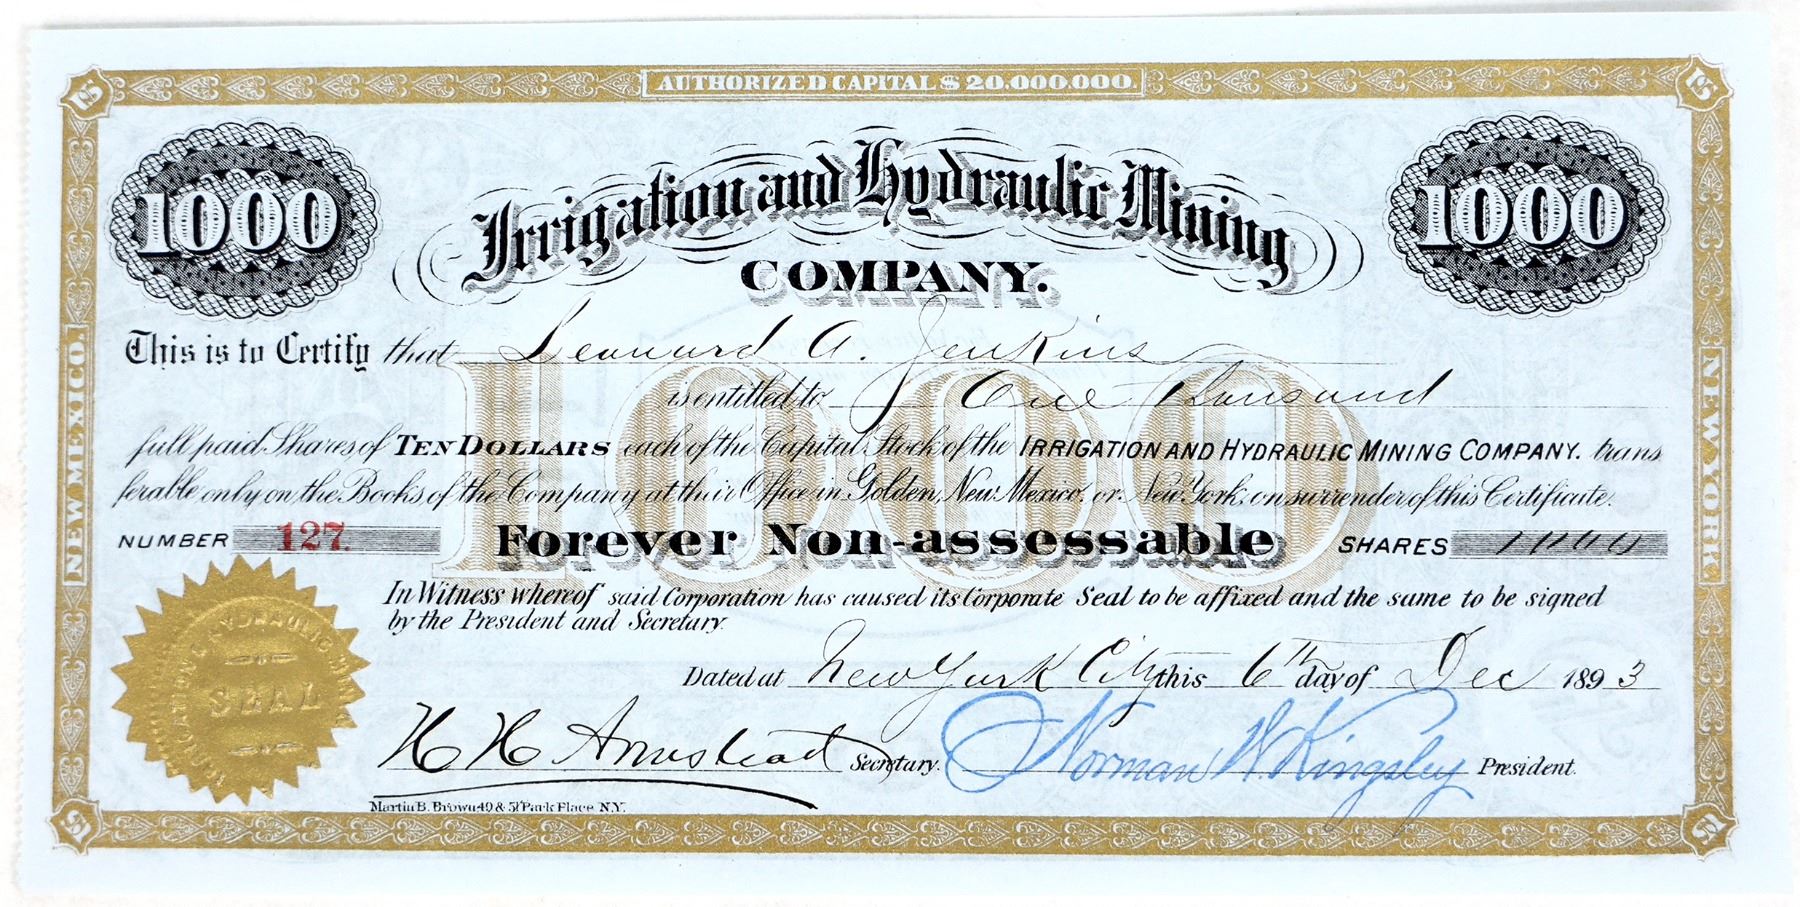 AUTHORIZED CAPITAL $ 20.000.000.
1000
1000
Irrigation and Hydraulic Mining
COMPANY.
This is to Certify that Leonard A. Jenkins
is entitled to One Thousand
full paid Shares of TEN DOLLARS each of the Capital Stock of the IRRIGATION AND HYDRAULIC MINING COMPANY. trans
ferable only on the Books of the Company at their Office in Golden, New Mexico, or New York, on surrender of this Certificate.
NUMBER 127.
Forever Non-assessable
SHARES 1000
1000
In Witness whereof said Corporation has caused its Corporate Seal to be affixed and the same to be signed
by the President and Secretary.
Dated at New York City this 6th day of Dec 1893
H H Armstead Secretary.
Norman W Kingsley President.
Martin B. Brown 49 & 51 Park Place N.Y.
NEW MEXICO.
NEW YORK.
IRRIGATION & HYDRAULIC MINING
SEAL